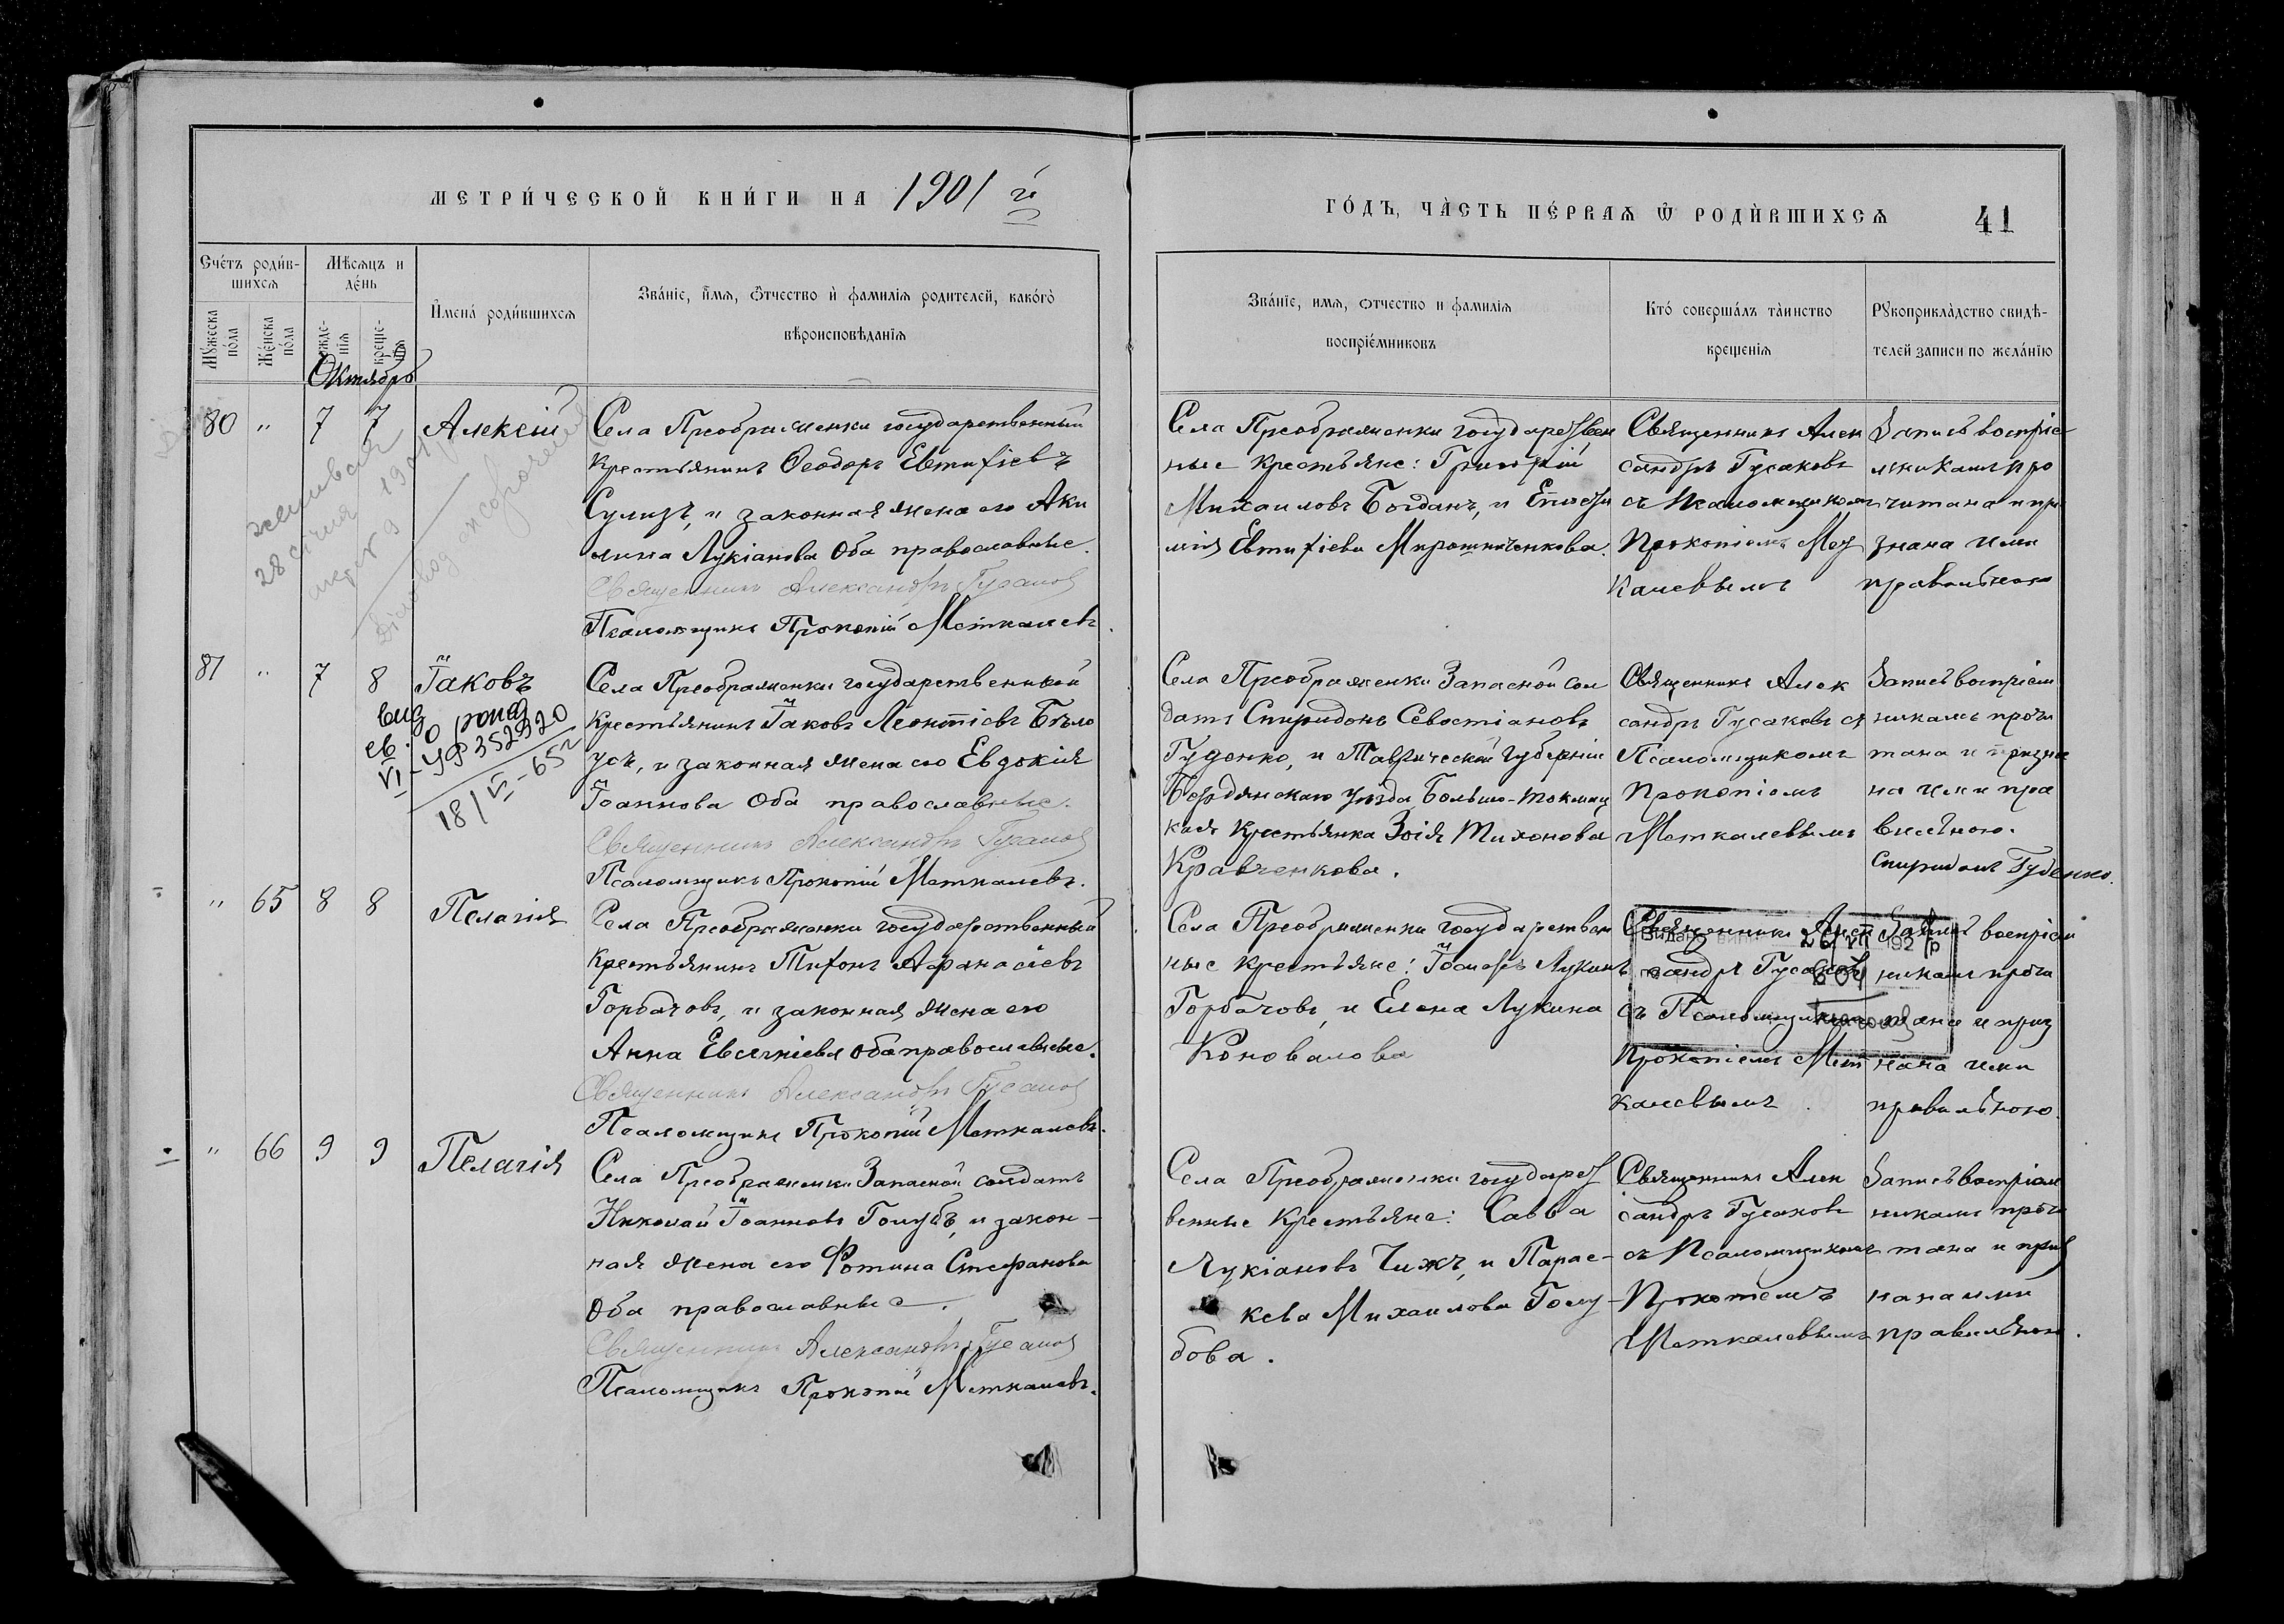 МЕТРИ́ЧЕСКОЙ КНИ́ГИ НА 1901 й
ГО́ДЪ, ЧА̀СТЬ ПЕ́РВАѦ Ѿ РОДЍВШИХСѦ
41
Сче́тъ роди́в-
шихсѧ
Мꙋ́жеска по́ла
Же́нска по́ла
Мѣ́сѧцъ и
де́нь
рожде-
нїѧ
креще-
нїѧ
Октябрь
И҆мена̀ роди́вшихсѧ
Зва́нїе, и҆́мѧ, ѻ҆́тчество и҆ фамилїѧ родителей, како́гѡ
вѣроисповѣ́данїѧ
Зва́нїе, имѧ, ѻтчество и фамилїѧ
воспрїе́мниковъ
Кто́ соверша́лъ та̀инство
креще́нїѧ
Рꙋкоприкла̀дство свидѣ-
телей записи по жела́нїю
80 " 7 7 Алексій
Села Преображенки государственный
крестьянинъ Ѳеодоръ Евтихіевъ
Сулизъ, и законная жена его Аки
лина Лукіанова Оба православные.
Священникъ Александръ Гусаковъ
Псаломщикъ Прокопій Меткалевъ.
Села Преображенки государствен
ные крестьяне: Григорій
Михаиловъ Богданъ, и Еписти
мія Евтихіева Мирошниченкова.
Священникъ Алек
сандръ Гусаковъ
съ Псаломщикомъ
Прокопіемъ Мет
калевымъ
Запись воспріе
мникамъ про
читана и при
знана ими
правильною
81 " 7 8 Іаковъ
св. о рожд
VI-УР 352920
18/VI-65г
Села Преображенки государственный
крестьянинъ Іаковъ Леонтіевъ Бѣло
усъ, и законная жена его Евдокія
Іоаннова Оба православные.
Священникъ Александръ Гусаковъ
Псаломщикъ Прокопій Меткалевъ.
Села Преображенки Запасной сол
датъ Спиридонъ Севостіановъ
Гуденко, и Таврической губерніи
Бердянскаго уѣзда Больше-Токмац
кая крестьянка Зоія Тихонова
Кравченкова.
Священникъ Алек
сандръ Гусаковъ съ
Псаломщикомъ
Прокопіемъ
Меткалевымъ
Запись воспріем
никамъ прочи
тана и призна
на ими пра
вильною.
Спиридонъ Гуденко.
" 65 8 8 Пелагія
Села Преображенки государственный
крестьянинъ Тихонъ Афанасіевъ
Горбачовъ, и законная жена его
Анна Евсигніева оба православные.
Священникъ Александръ Гусаковъ
Псаломщикъ Прокопій Меткалевъ.
Села Преображенки государствен
ные крестьяне: Іосифъ Лукинъ
Горбачовъ, и Елена Лукина
Коновалова
Священникъ Алек
сандръ Гусаковъ
съ Псаломщикомъ
Прокопіемъ Мет
калевымъ
Запись воспріем
никамъ прочи
тана и приз
нана ими
правильною.
Видано 26/VII 192 р
604
" 66 9 9 Пелагія
Села Преображенки Запасной солдатъ
Николай Іоанновъ Голубъ, и закон-
ная жена его Фотина Стефанова
Оба православные.
Священникъ Александръ Гусаковъ
Псаломщикъ Прокопій Меткалевъ.
Села Преображенки государст
венные крестьяне: Савва
Лукіановъ Чижъ, и Парас-
кева Михаилова Голу-
бова.
Священникъ Алек
сандръ Гусаковъ
съ Псаломщикомъ
Прокопіемъ
Меткалевымъ
Запись воспріем
никамъ прочи
тана и приз
нана ими
правильною.